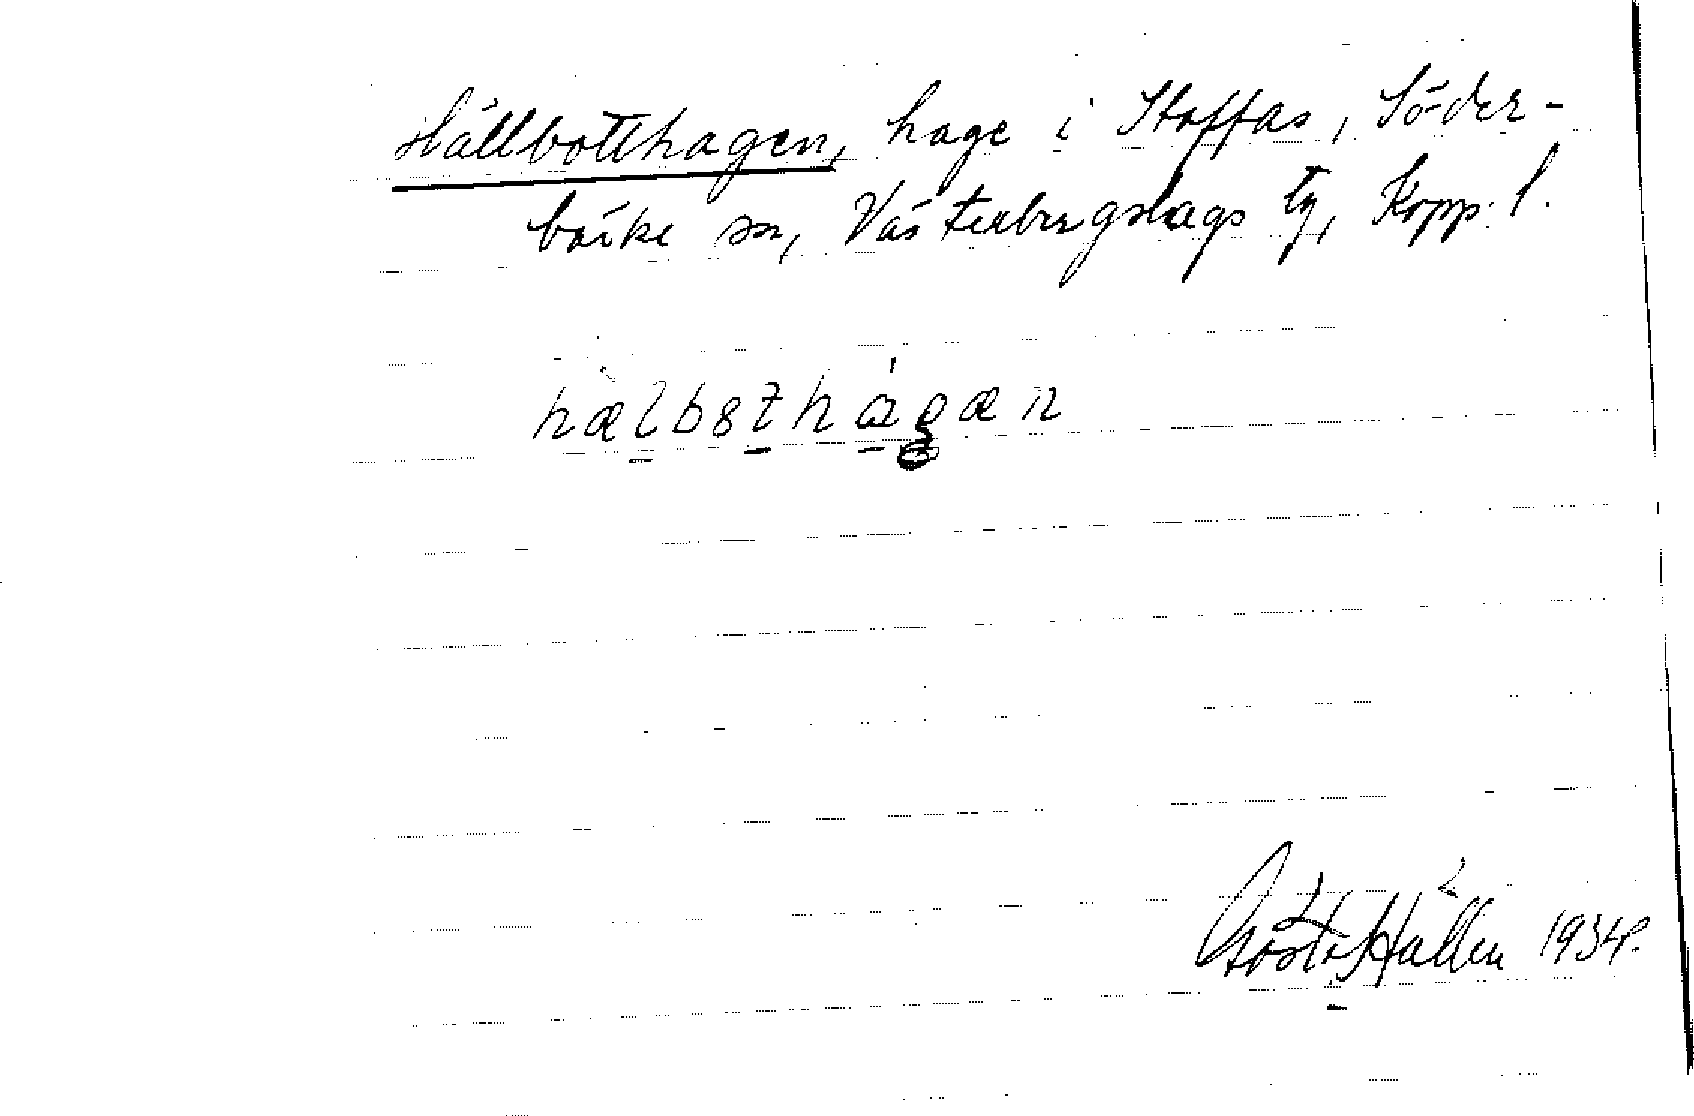 Hällbotthagen, hage i Staffas, Söder-
bärke sn, Västerbergslags tg, Kopp. l.
hæ̀lbsthágæn
Gösta Hállen 1934.